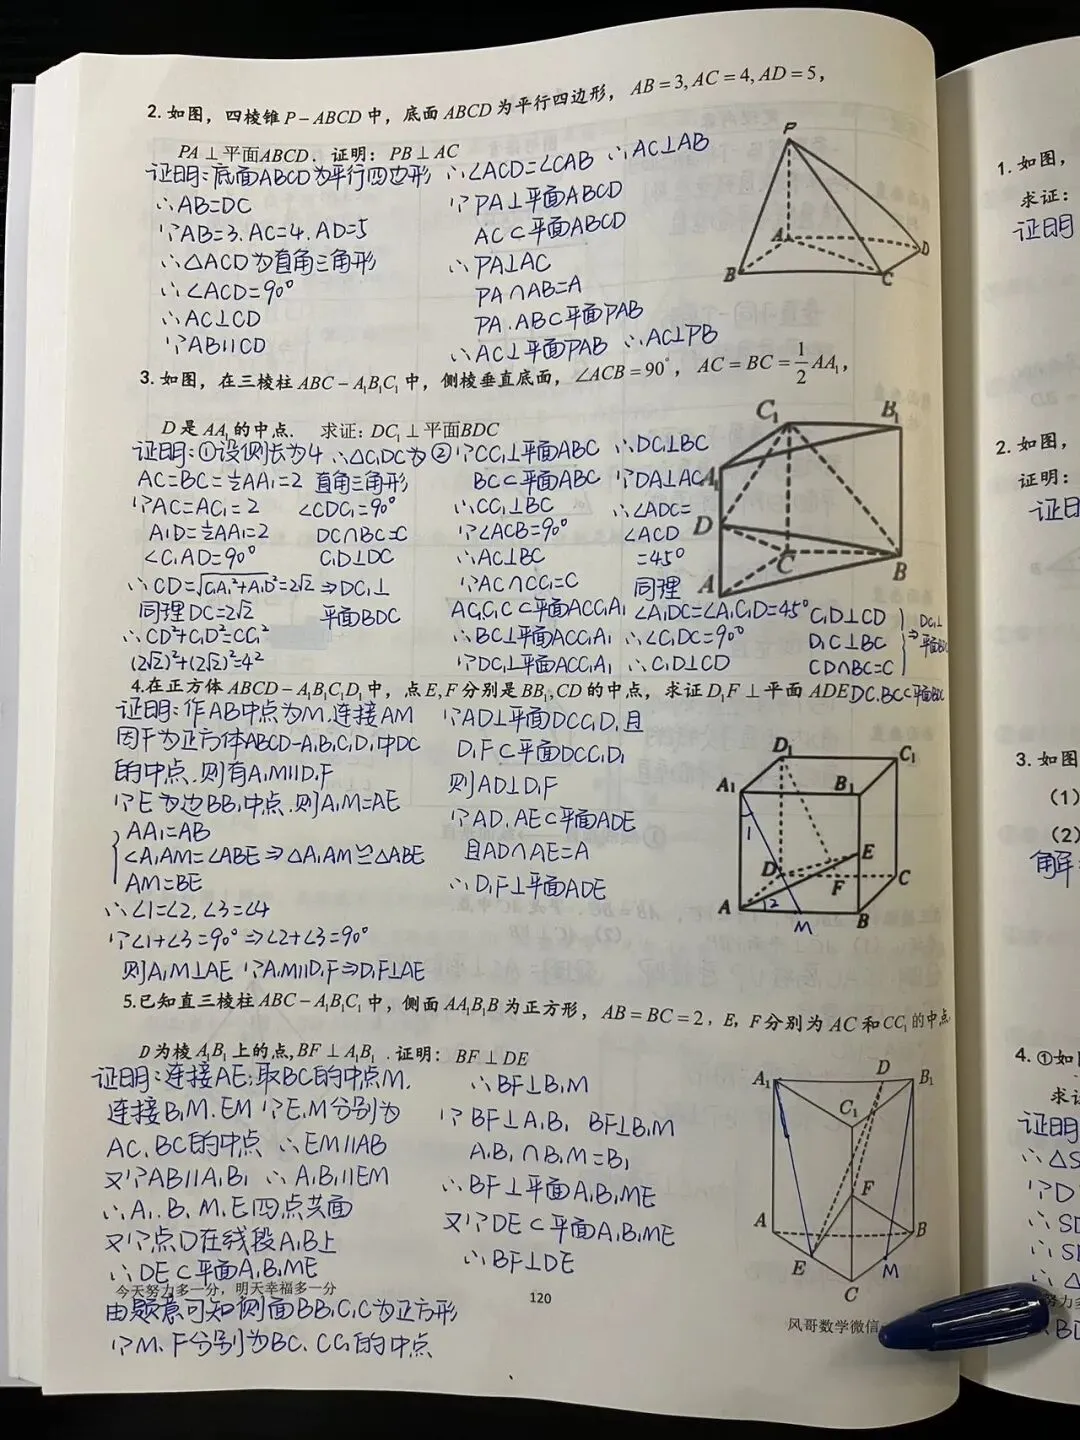 2. 如图，四棱锥 P－ABCD 中，底面 ABCD 为平行四边形， AB＝3, AC＝4, AD＝5，
PA⊥平面ABCD．证明：PB⊥AC
证明：底面ABCD为平行四边形
∴AB=DC
∵AB=3. AC=4. AD=5
∴△ACD为直角三角形
∴∠ACD=90°
∴AC⊥CD
∵AB∥CD
∴∠ACD=∠CAB ∴AC⊥AB
∵PA⊥平面ABCD
AC⊂平面ABCD
∴PA⊥AC
PA∩AB=A
PA.AB⊂平面PAB
∴AC⊥平面PAB ∴AC⊥PB
P
A
B
C
D
3. 如图，在三棱柱 ABC－A₁B₁C₁ 中，侧棱垂直底面，∠ACB＝90°， AC＝BC＝1/2 AA₁，
D 是 AA₁ 的中点. 求证：DC₁⊥平面BDC
证明：①设侧长为4
AC=BC=½AA₁=2
∵AC=AC₁=2
A₁D=½AA₁=2
∠C₁AD=90°
∴CD=√C₁A₁²+A₁D²=2√2
同理DC=2√2
∴CD²+C₁D²=CC₁²
(2√2)²+(2√2)²=4²
∴△C₁DC为
直角三角形
∠CDC₁=90°
DC∩BC=C
C₁D⊥DC
⇒DC₁⊥
平面BDC
②∵CC₁⊥平面ABC
BC⊂平面ABC
∴CC₁⊥BC
∵∠ACB=90°
∴AC⊥BC
∵AC∩CC₁=C
AC,C₁C⊂平面ACC₁A₁
∴BC⊥平面ACC₁A₁
∵DC₁⊥平面ACC₁A₁
∴DC₁⊥BC
∵DA⊥AC
∴∠ADC=
∠ACD
=45°
同理
∠A₁DC=∠A₁C₁D=45°
∴∠C₁DC=90°
∴C₁D⊥CD
C₁D⊥CD
D₁C⊥BC
CD∩BC=C
DC.BC⊂平面BDC
⇒DC₁⊥
平面BDC
C₁
B₁
A₁
D
C
B
A
4.在正方体 ABCD－A₁B₁C₁D₁ 中，点 E, F 分别是 BB₁, CD 的中点，求证 D₁F⊥平面 ADE
证明：作AB中点为M.连接AM
因F为正方体ABCD-A₁B₁C₁D₁中DC
的中点.则有A₁M∥D₁F
∵E为边BB₁中点.则A₁M=AE
AA₁=AB
∠A₁AM=∠ABE⇒△A₁AM≌△ABE
AM=BE
∴∠1=∠2, ∠3=∠4
∵∠1+∠3=90°⇒∠2+∠3=90°
则A₁M⊥AE ∵A₁M∥D₁F⇒D₁F⊥AE
∵AD⊥平面DCC₁D₁且
D₁F⊂平面DCC₁D₁
则AD⊥D₁F
∵AD.AE⊂平面ADE
且AD∩AE=A
∴D₁F⊥平面ADE
D₁
C₁
A₁
B₁
1
E
D
F
C
A
2
M
B
5.已知直三棱柱 ABC－A₁B₁C₁ 中，侧面 AA₁B₁B 为正方形， AB＝BC＝2，E，F 分别为 AC 和 CC₁ 的中点，
D 为棱 A₁B₁ 上的点,BF⊥A₁B₁ .证明：BF⊥DE
证明：连接AE;取BC的中点M.
连接B₁M.EM ∵E,M分别为
AC.BC的中点 ∴EM∥AB
又∵AB∥A₁B₁ ∴A₁B₁∥EM
∴A₁.B₁.M.E四点共面
又∵点D在线段A₁B₁上
∴DE⊂平面A₁B₁ME
今天努力多一分，明天幸福多一分
由题意可知侧面BB₁C₁C为正方形
∵M.F分别为BC.CC₁的中点
∴BF⊥B₁M
∵BF⊥A₁B₁ BF⊥B₁M
A₁B₁∩B₁M=B₁
∴BF⊥平面A₁B₁ME
又∵DE⊂平面A₁B₁ME
∴BF⊥DE
A₁
D
B₁
C₁
F
A
B
E
M
C
120
风哥数学微信
1. 如图，
求证：
证明
2. 如图，
证明：
证明
3. 如图
(1)
(2)
解：
4. ①如
求证
证明
∴△S
∵D
∴SD
∴S
∴△
努力多
∴BD